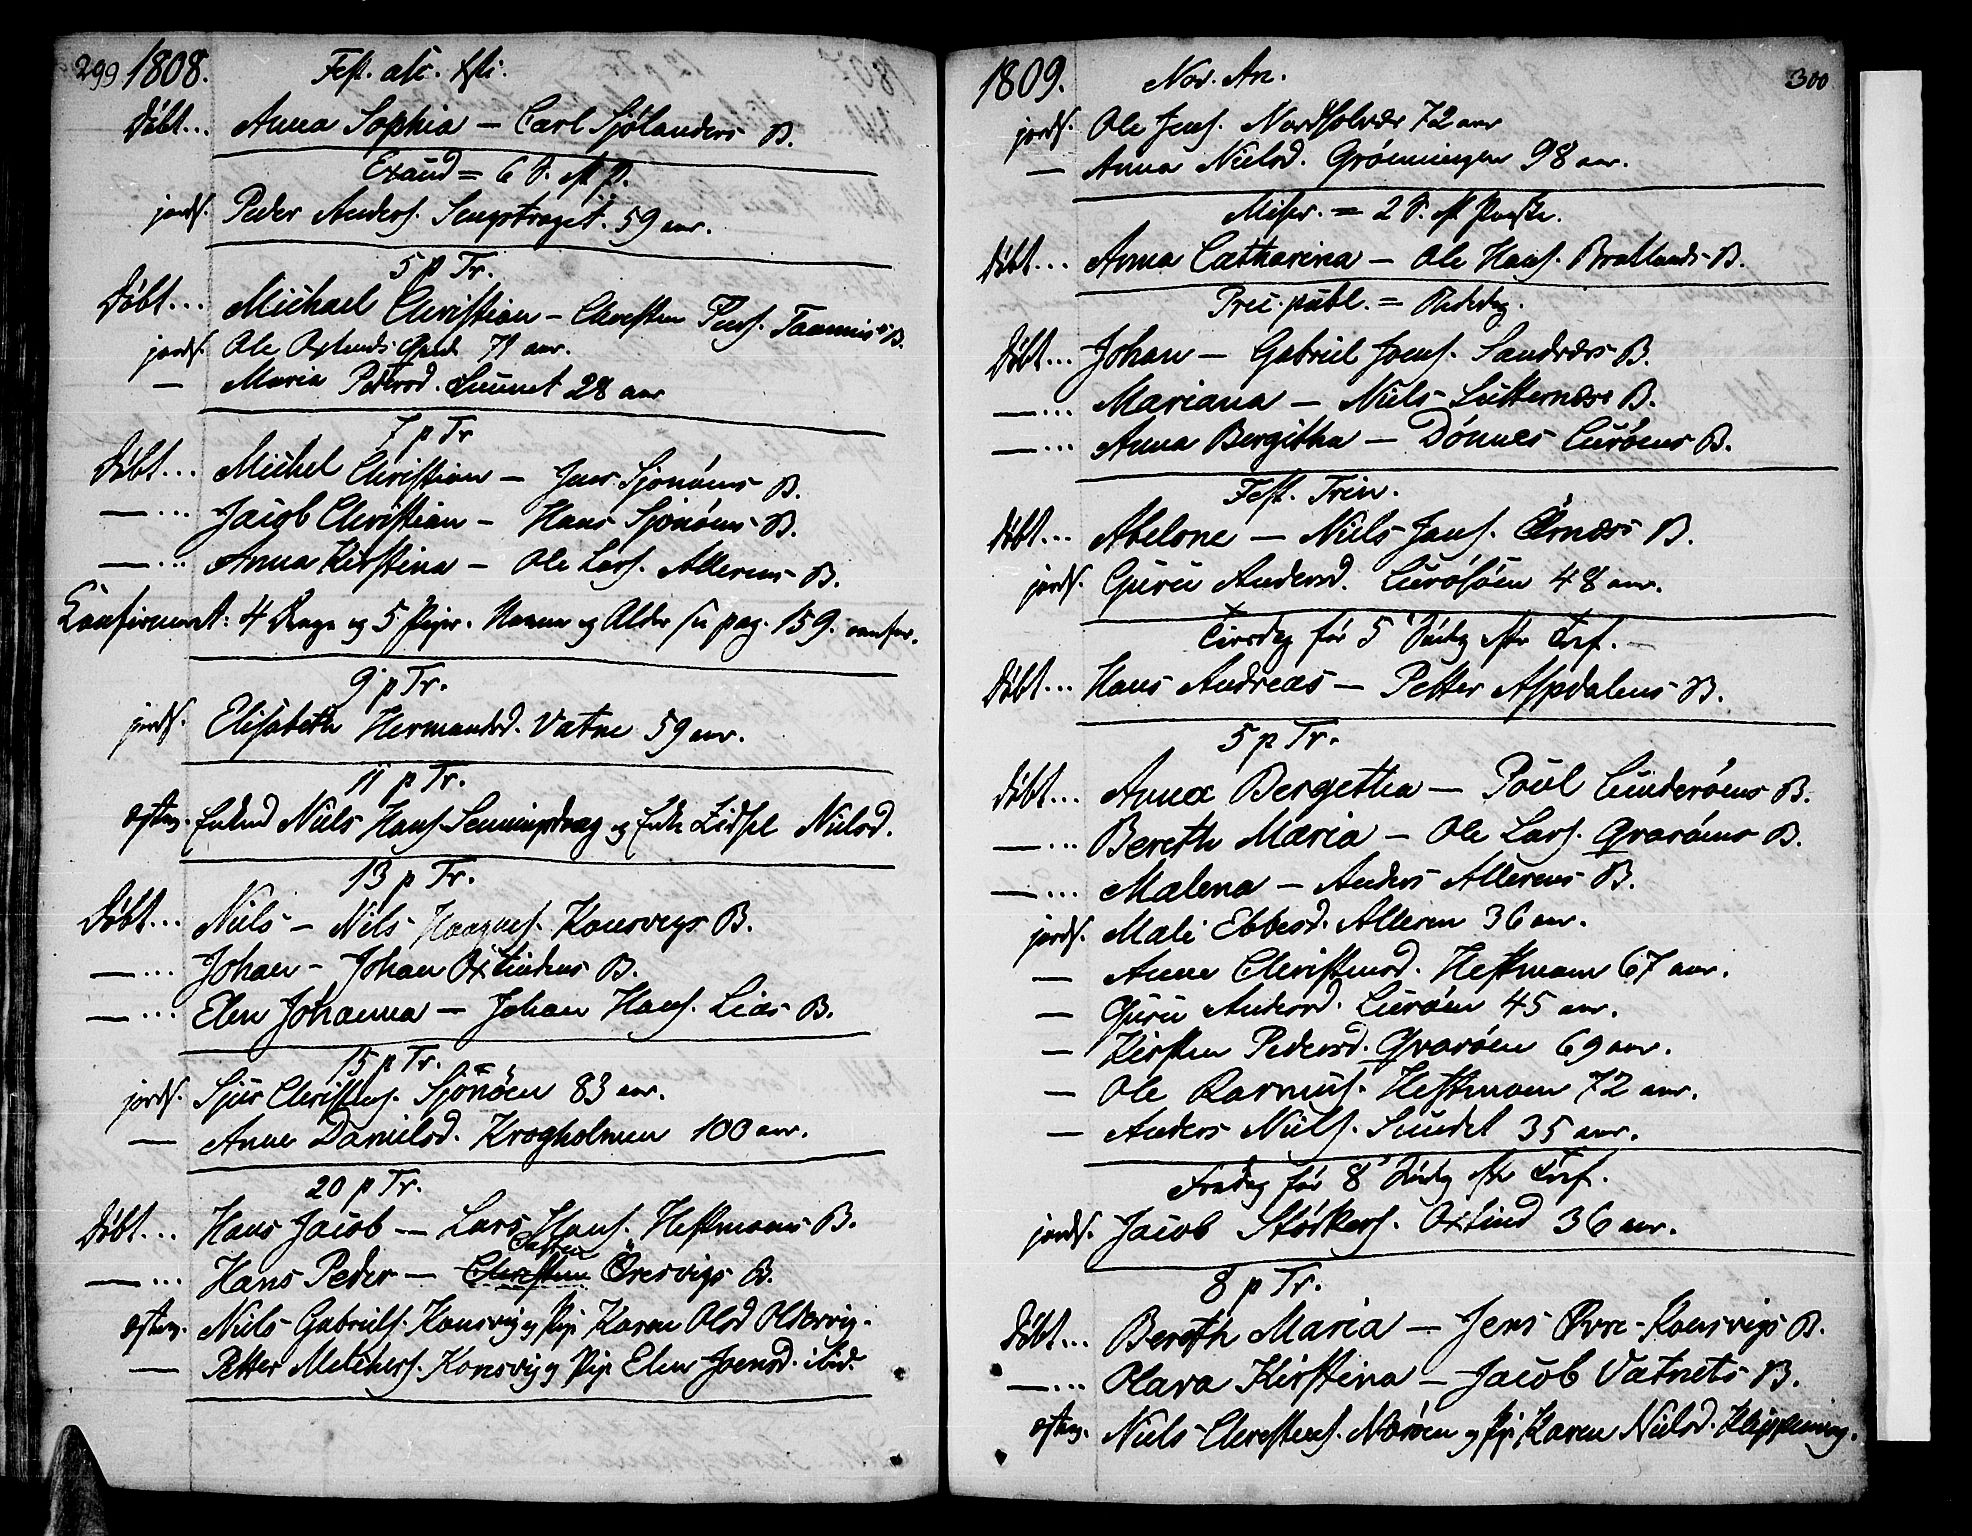 299 1808. Fest. asc. Xsti.
Døbt... Anna Sophia — Carl Sjølanders B.
Exaud = 6 S. eft. P.
jords. Peder Anders. 59 aar.
5 p Tr.
Døbt... Michael Christian — Christen Peders. B.
jords. Ole Oxtinds 71 aar.
— Maria Pedersd. Sundet 28 aar
7 p Tr
Døbt... Michel Christian — Jens Sjonøens B.
—... Jacob Christian — Hans Sjonøens B.
—... Anna Kirstina — Ole Lars. Allerens B.
Confirmeret: 4 Drenge og 5 Piger. Navne og Alder see pag. 159. ovenfor.
9 p Tr.
jords. Elisabeth Hermandsd. Vatne 59 aar.
11 p Tr.
ægtev. Enkemd Niels Hans. og Enke Zidsel Nielsd.
13 p Tr.
Døbt... Niels — Nils Haagens. Konsvigs B.
—... Johan — Johan Oxtindens B.
—... Elen Johanna — Johan Hans. Lias B.
15 p Tr.
jords. Sjur Christens. Sjonøen 83 aar.
— Anne Danielsd. Krogholmen 100 aar.
20 p Tr.
Døbt... Hans Jacob — Lars Hans. Hestmans B.
—... Hans Peder — Øresvigs B.
ægtev. Niels Gabriels. Konsvig og Pige Karen Olsd Oldervig.
— Petter Melchers. Konsvig og Pige Elen Joensd. ibid.
1809. Nov. An. 300
jords. Ole Jens. Nordsolvær 72 aar
— Anna Nielsd. Grønningen 98 aar.
Miser. = 2 S. eft. Paaske.
Døbt... Anna Catharina — Ole Hans. Bratlands B.
Prec. publ. = Bededag.
Døbt... Johan — Gabriel Joens. Sandværs B.
—... Mariana — Niels Lutternæss B.
—... Anna Bergitha — Dónnes Lurøens B.
Fest. Trin.
Døbt... Abelone — Niels Jans. Ørnæss B.
jords. Guru Andersd. Lurøen 48 aar.
Tirsdag før 5 Søndag efter Tref.
Døbt... Hans Andreas — Petter Aspdalens B.
5 p Tr.
Døbt... Anna Bergetha — Poul Lunderøens B.
—... Bereth Maria — Ole Lars. Qvarøens B.
—... Malena — Anders Allerens B.
jords. Mali Ebbesd. Alleren 36 aar.
— Anne Christensd. Hestmann 67 aar.
— Guru Andersd. Lurøen 45 aar.
— Kirsten Pedersd. Qvarøen 69 aar.
— Ole Rasmus. Hestmann 72 aar.
— Anders Niels. Sundet 35 aar.
Fredag før 8 Søndag efter Tref.
jords. Jacob Størkers. Oxtind 36 aar.
8 p Tr.
Døbt... Bereth Maria — Jens Øvre-Konsvigs B.
—... Olava Kirstina — Jacob Vatnets B.
ægtev. Niels Christens. Norøen og Pige Karen Nielsd. Klippening.